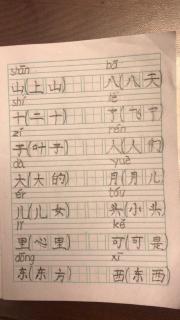 shān bā
山(上山) 八(八天)
shí le
十(二十) 了(飞了)
zǐ rén
子(叶子) 人(人们)
dà yuè
大(大的) 月(月儿)
ér tóu
儿(儿女) 头(小头)
lǐ kě
里(心里) 可(可是)
dōng xī
东(东方) 西(东西)